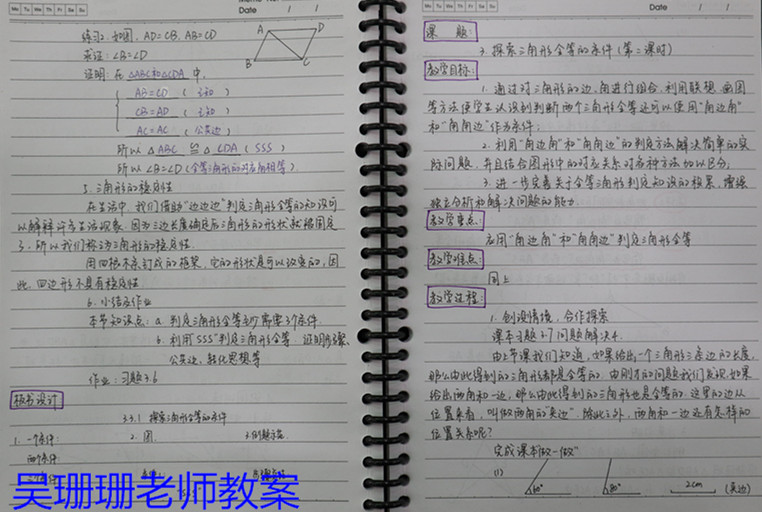 Mo Tu We Th Fr Sa Su
Date / /
练习2: 如图, AD=CB, AB=CD
求证: ∠B=∠D
证明: 在 △ABC和△CDA 中,
AB=CD (已知)
CB=AD (已知)
AC=AC (公共边)
所以 △ABC ≌ △CDA (SSS)
所以 ∠B=∠D (全等三角形的对应角相等)
A D
B C
5. 三角形的稳定性
在生活中, 我们借助"边边边"判定三角形全等的知识可
以解释许多生活现象. 因为三边长度确定后三角形的形状就被固定
了, 所以我们称为三角形的稳定性.
用四根木条钉成的框架, 它的形状是可以改变的, 因
此, 四边形不具有稳定性
6. 小结及作业
本节知识点: a. 判定三角形全等至少需要3个条件
b. 利用"SSS"判定三角形全等 证明步骤,
公共边, 转化思想等
作业: 习题3.6
板书设计:
3.3.1 探索三角形全等的条件
1. 一个条件: 2. 图, 3. 例题示范
两个条件:
吴珊珊老师教案
Mo Tu We Th Fr Sa Su
Date / /
课 题:
3. 探索三角形全等的条件 (第二课时)
教学目标:
1. 通过对三角形的边、角进行组合, 利用联想、画图
等方法使学生认识到判断两个三角形全等还可以使用"角边角"
和"角角边"作为条件;
2. 利用"角边角"和"角角边"的判定方法解决简单的实
际问题, 并且结合图形中的对应关系对各种方法加以区分;
3. 进一步完善关于全等三角形判定知识的框架, 增强
独立分析和解决问题的能力
教学重点:
应用"角边角"和"角角边"判定三角形全等
教学难点:
同上
教学过程:
1. 创设情境, 合作探索
课本习题3.7问题解决4.
由上节课我们知道, 如果给出一个三角形三条边的长度,
那么由此得到的三角形都是全等的. 由刚才的问题我们发现, 如果
给出两角和一边, 那么由此得到的三角形也是全等的. 这里的边从
位置来看, 叫做两角的"夹边". 除此之外, 两角和一边还有怎样的
位置关系呢?
完成课本"做一做"
(1) 60° 80° 2cm (夹边)